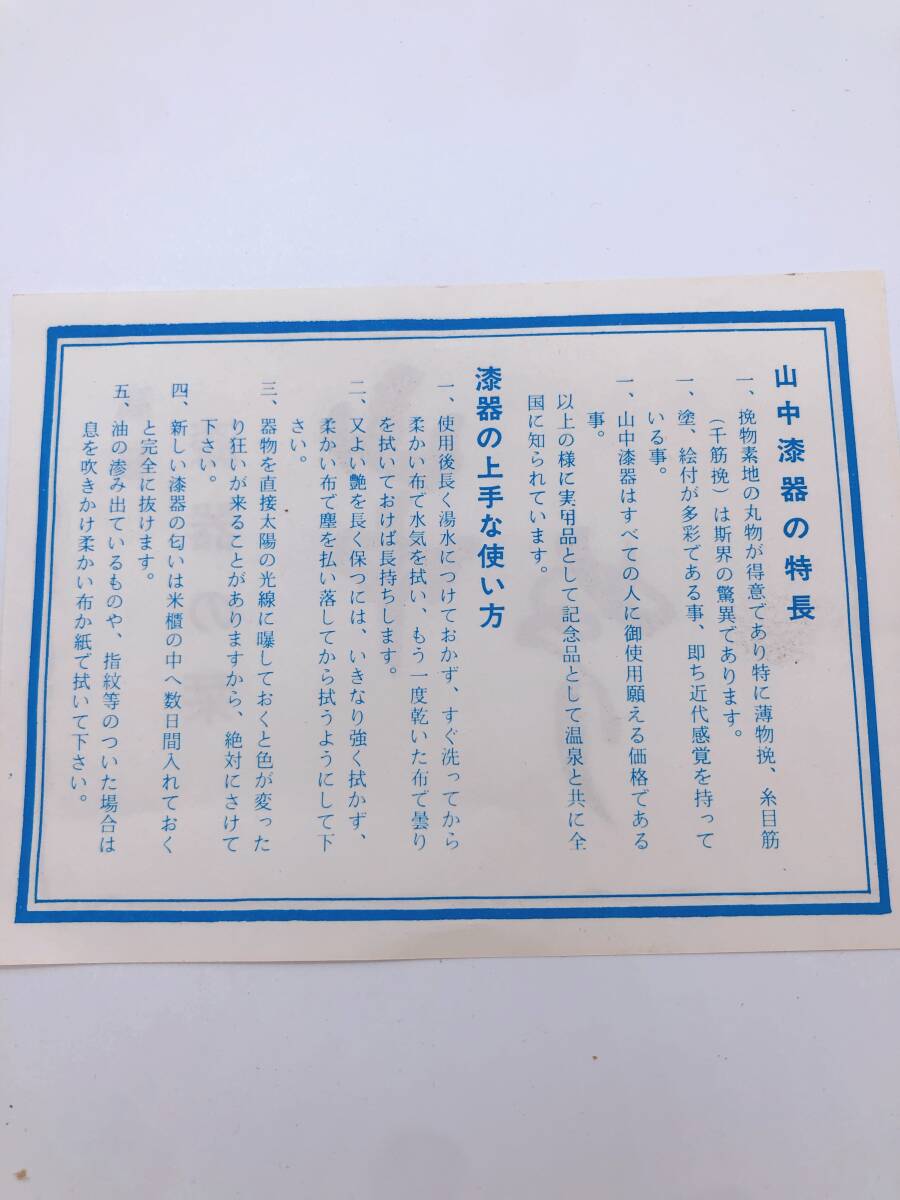 山中漆器の特長
一、挽物素地の丸物が得意であり特に薄物挽、糸目筋
(千筋挽)は斯界の驚異であります。
一、塗、絵付が多彩である事、即ち近代感覚を持って
いる事。
一、山中漆器はすべての人に御使用願える価格である
事。
以上の様に実用品として記念品として温泉と共に全
国に知られています。
漆器の上手な使い方
一、使用後長く湯水につけておかず、すぐ洗ってから
柔かい布で水気を拭い、もう一度乾いた布で曇り
を拭いておけば長持ちします。
二、又よい艶を長く保つには、いきなり強く拭かず、
柔かい布で塵を払い落してから拭うようにして下
さい。
三、器物を直接太陽の光線に曝しておくと色が変った
り狂いが来ることがありますから、絶対にさけて
下さい。
四、新しい漆器の匂いは米櫃の中へ数日間入れておく
と完全に抜けます。
五、油の滲み出ているものや、指紋等のついた場合は
息を吹きかけ柔かい布か紙で拭いて下さい。